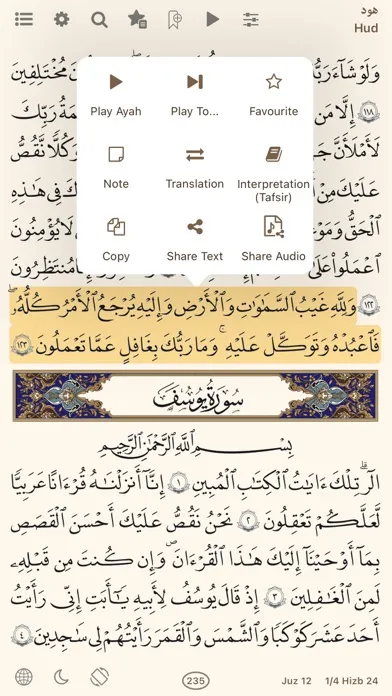 هود
Hud
وَلَوْ شَآءَ رَبُّ
مُخْتَلِفِينَ
١١٨ إِلَّا مَن
مَةُ رَبِّكَ
لَأَمْلَأَنَّ جَ
وَكُلًّا نَّقُصُّ
عَلَيْكَ مِنْ
كَ فِى هَٰذِهِ
ٱلْحَقُّ وَمَوْعِ
لَا يُؤْمِنُونَ
ٱعْمَلُوا۟ عَلَىٰ
مُنتَظِرُونَ
Play Ayah
Play To...
Favourite
Note
Translation
Interpretation
(Tafsir)
Copy
Share Text
Share Audio
١٢٢ وَلِلَّهِ غَيْبُ ٱلسَّمَٰوَٰتِ وَٱلْأَرْضِ وَإِلَيْهِ يُرْجَعُ ٱلْأَمْرُ كُلُّهُۥ
فَٱعْبُدْهُ وَتَوَكَّلْ عَلَيْهِ ۚ وَمَا رَبُّكَ بِغَٰفِلٍ عَمَّا تَعْمَلُونَ ١٢٣
سُورَةُ يُوسُفَ
بِسْمِ ٱللَّهِ ٱلرَّحْمَٰنِ ٱلرَّحِيمِ
الٓر ۚ تِلْكَ ءَايَٰتُ ٱلْكِتَٰبِ ٱلْمُبِينِ ١ إِنَّآ أَنزَلْنَٰهُ قُرْءَٰنًا عَرَبِيًّا
لَّعَلَّكُمْ تَعْقِلُونَ ٢ نَحْنُ نَقُصُّ عَلَيْكَ أَحْسَنَ ٱلْقَصَصِ
بِمَآ أَوْحَيْنَآ إِلَيْكَ هَٰذَا ٱلْقُرْءَانَ وَإِن كُنتَ مِن قَبْلِهِۦ
لَمِنَ ٱلْغَٰفِلِينَ ٣ إِذْ قَالَ يُوسُفُ لِأَبِيهِ يَٰٓأَبَتِ إِنِّى رَأَيْتُ
أَحَدَ عَشَرَ كَوْكَبًا وَٱلشَّمْسَ وَٱلْقَمَرَ رَأَيْتُهُمْ لِى سَٰجِدِينَ ٤
235
Juz 12
1/4 Hizb 24